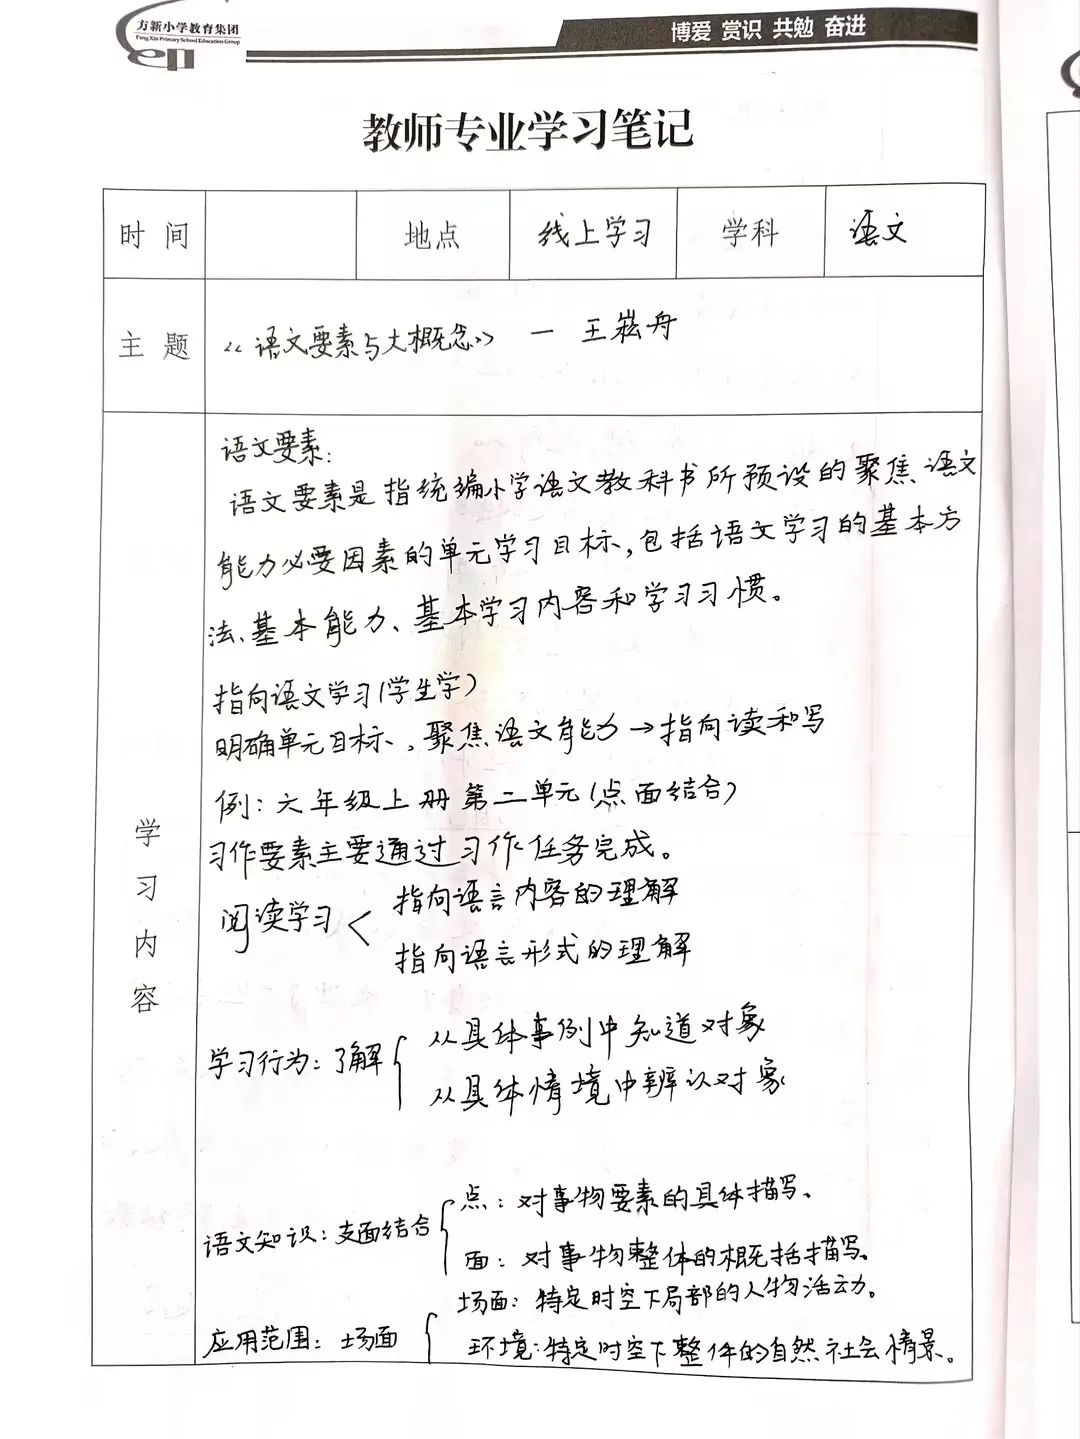 方新小学教育集团
Fang Xin Primary School Education Group
博爱 赏识 共勉 奋进
教师专业学习笔记
时间 地点 线上学习 学科 语文
主题 《语文要素与大概念》 — 王崧舟
学习内容
语文要素:
语文要素是指统编小学语文教科书所预设的聚焦语文
能力必要因素的单元学习目标,包括语文学习的基本方
法、基本能力、基本学习内容和学习习惯。
指向语文学习(学生学)
明确单元目标、聚焦语文能力→指向读和写
例:六年级上册第二单元(点面结合)
习作要素主要通过习作任务完成。
阅读学习< 指向语言内容的理解
指向语言形式的理解
学习行为:了解{ 从具体事例中知道对象
从具体情境中辨认对象
语文知识:支面结合{ 点:对事物要素的具体描写。
面:对事物整体的概括描写。
应用范围:场面{ 场面:特定时空下局部的人物活动。
环境:特定时空下整体的自然社会情景。